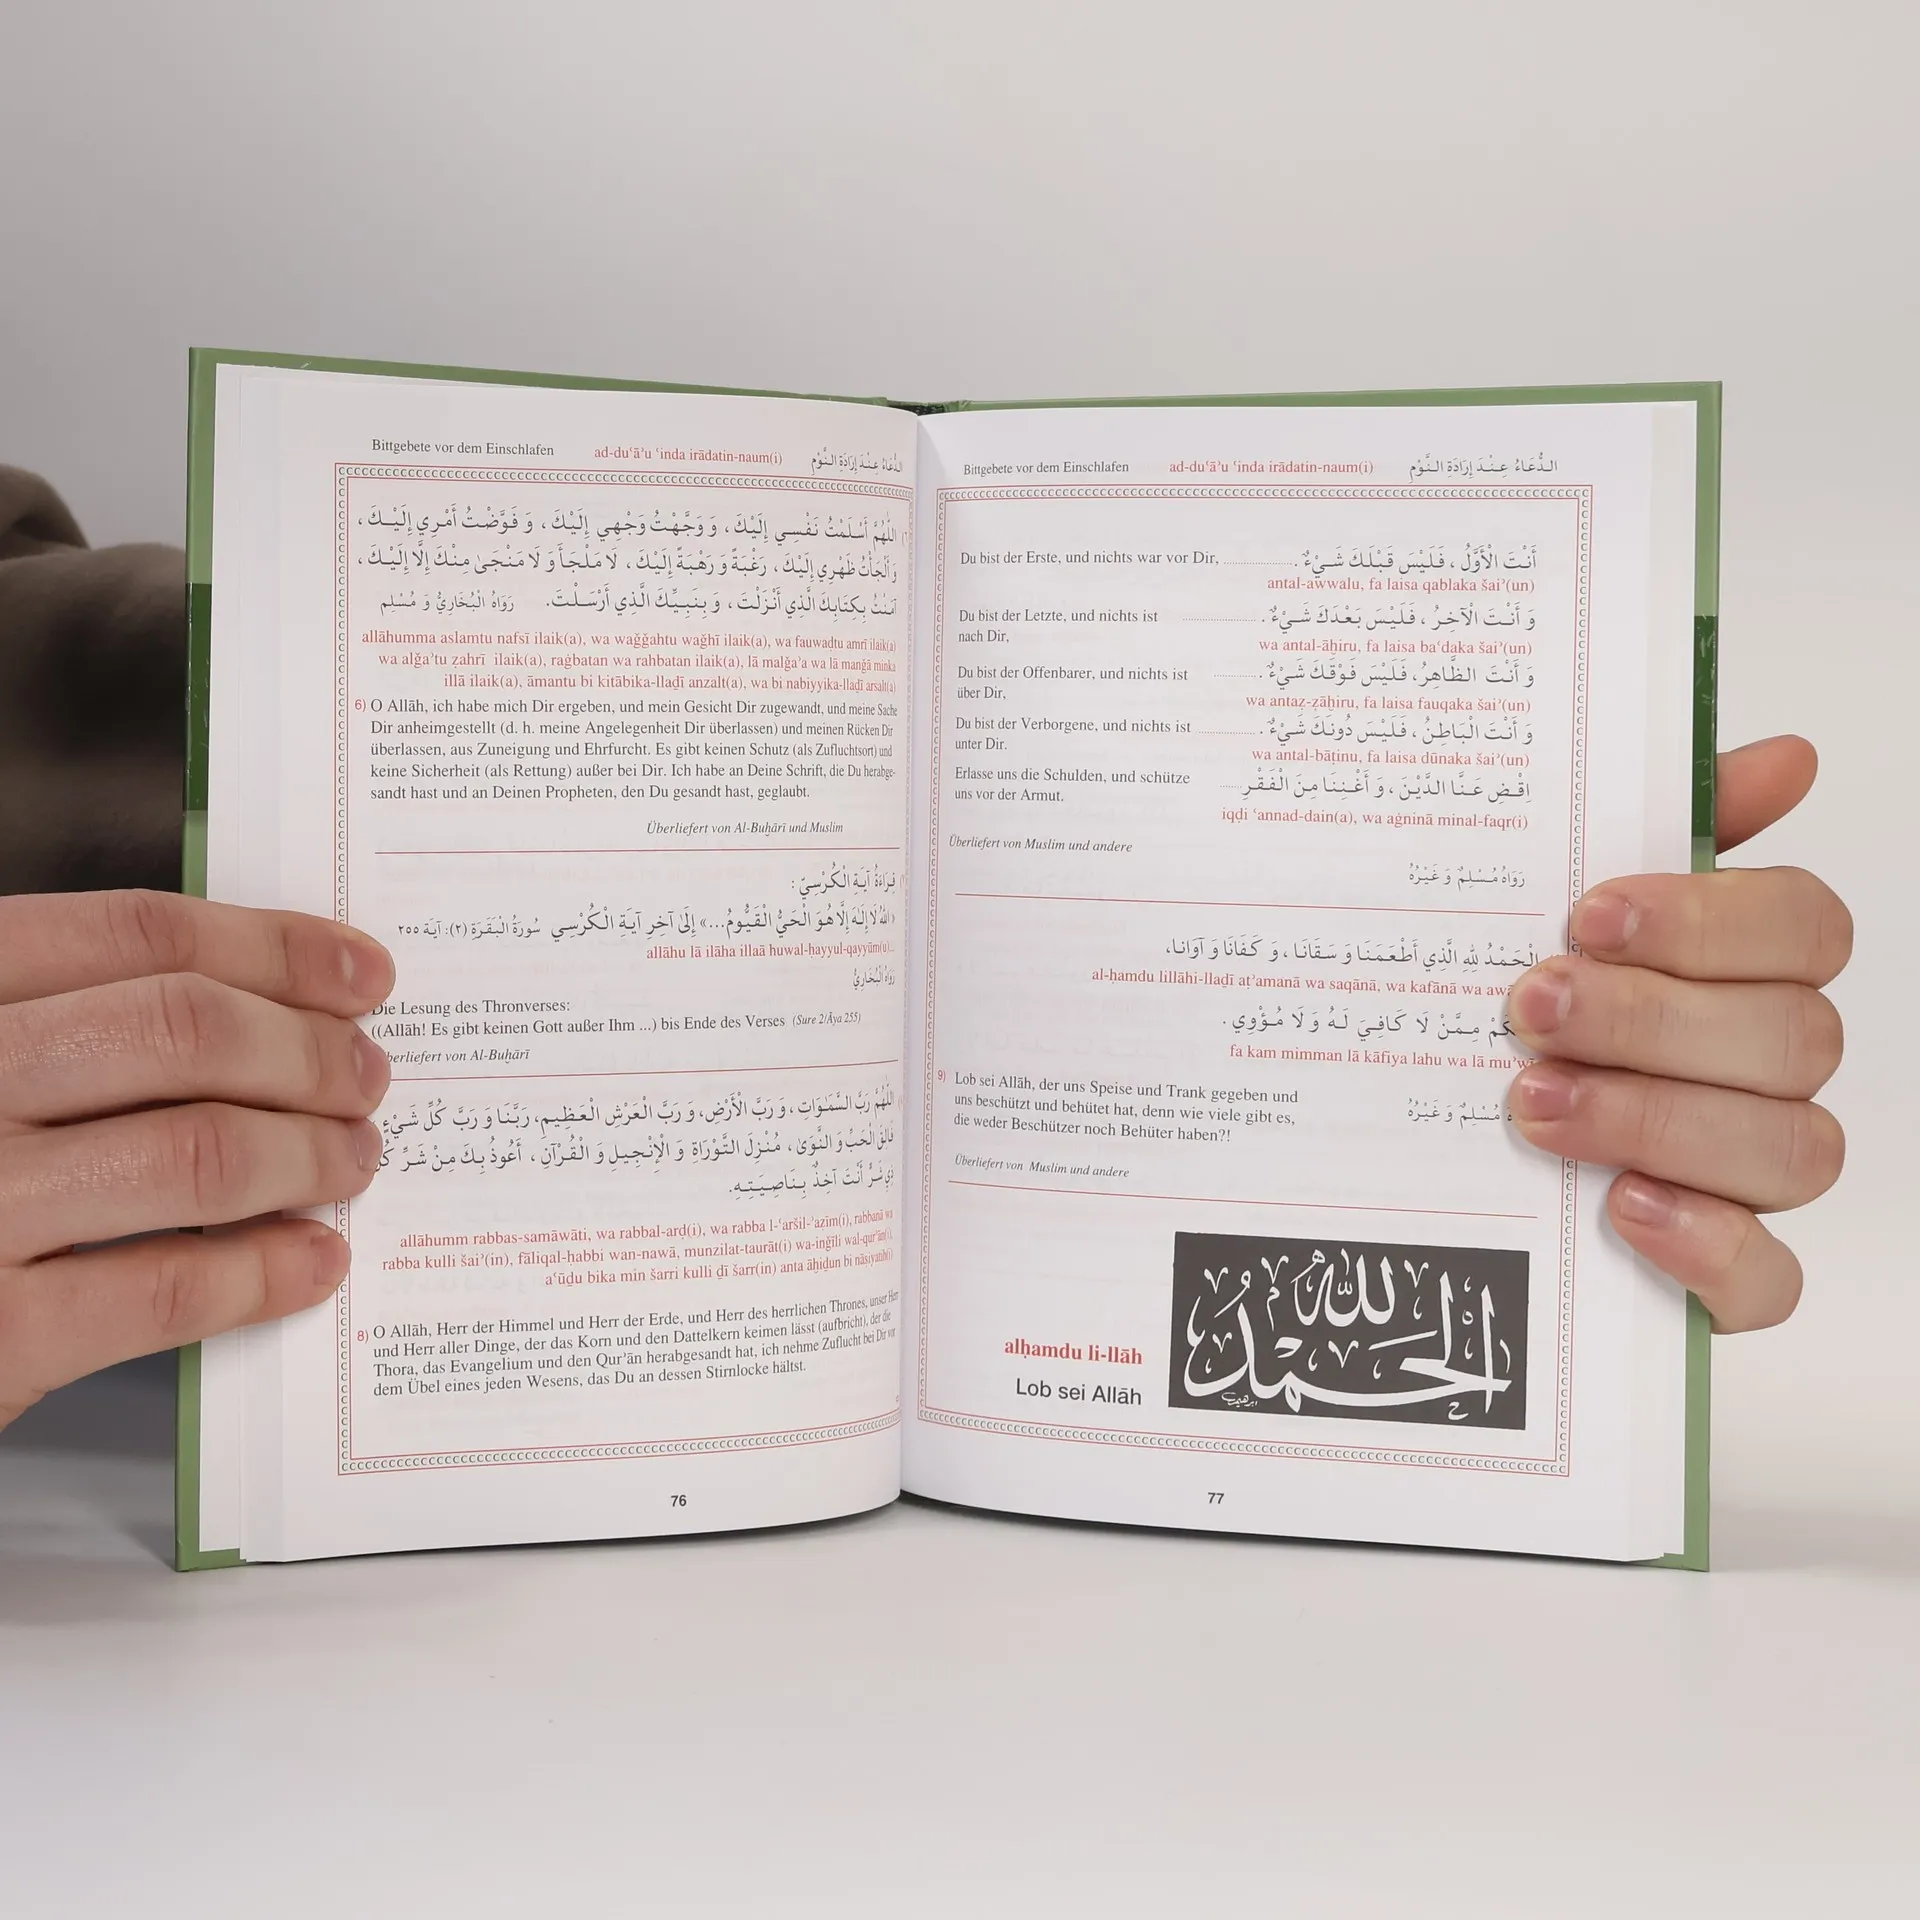 Bittgebete vor dem Einschlafen ad-duʿāʾu ʿinda irādatin-naum(i) الدُّعَاءُ عِنْدَ إِرَادَةِ النَّوْمِ
اللّٰهُمَّ أَسْلَمْتُ نَفْسِي إِلَيْكَ، وَ وَجَّهْتُ وَجْهِي إِلَيْكَ، وَ فَوَّضْتُ أَمْرِي إِلَيْكَ،
وَ أَلْجَأْتُ ظَهْرِي إِلَيْكَ، رَغْبَةً وَ رَهْبَةً إِلَيْكَ، لَا مَلْجَأَ وَ لَا مَنْجَىٰ مِنْكَ إِلَّا إِلَيْكَ،
آمَنْتُ بِكِتَابِكَ الَّذِي أَنْزَلْتَ، وَ بِنَبِيِّكَ الَّذِي أَرْسَلْتَ. رَوَاهُ الْبُخَارِيُّ وَ مُسْلِم
allāhumma aslamtu nafsī ilaik(a), wa waǧǧahtu waǧhī ilaik(a), wa fauwaḍtu amrī ilaik(a)
wa alǧaʾtu ẓahrī ilaik(a), raġbatan wa rahbatan ilaik(a), lā malǧaʾa wa lā manǧā minka
illā ilaik(a), āmantu bi kitābika-lladī anzalt(a), wa bi nabiyyika-lladī arsalt(a)
6) O Allāh, ich habe mich Dir ergeben, und mein Gesicht Dir zugewandt, und meine Sache
Dir anheimgestellt (d. h. meine Angelegenheit Dir überlassen) und meinen Rücken Dir
überlassen, aus Zuneigung und Ehrfurcht. Es gibt keinen Schutz (als Zufluchtsort) und
keine Sicherheit (als Rettung) außer bei Dir. Ich habe an Deine Schrift, die Du herabge-
sandt hast und an Deinen Propheten, den Du gesandt hast, geglaubt.
Überliefert von Al-Buḫārī und Muslim
قِرَاءَةُ آيَةِ الْكُرْسِيِّ :
«اللهُ لَا إِلٰهَ إِلَّا هُوَ الْحَيُّ الْقَيُّومُ...» إِلَىٰ آخِرِ آيَةِ الْكُرْسِي سُورَةُ الْبَقَرَةِ (٢): آيَة ٢٥٥
allāhu lā ilāha illaā huwal-ḥayyul-qayyūm(u)...
رَوَاهُ الْبُخَارِيُّ
Die Lesung des Thronverses:
((Allāh! Es gibt keinen Gott außer Ihm ...) bis Ende des Verses (Sure 2/Āya 255)
berliefert von Al-Buḫārī
اللّٰهُمَّ رَبَّ السَّمَٰوَاتِ، وَ رَبَّ الْأَرْضِ، وَ رَبَّ الْعَرْشِ الْعَظِيمِ، رَبَّنَا وَ رَبَّ كُلِّ شَيْءٍ
فَالِقَ الْحَبِّ وَ النَّوَىٰ، مُنْزِلَ التَّوْرَاةِ وَ الْإِنْجِيلِ وَ الْقُرْآنِ، أَعُوذُ بِكَ مِنْ شَرِّ كُلِّ
ذِي شَرٍّ أَنْتَ آخِذٌ بِنَاصِيَتِهِ.
allāhumm rabbas-samāwāti, wa rabbal-arḍ(i), wa rabba l-ʿaršil-ʾaẓīm(i), rabbanā wa
rabba kulli šaiʾ(in), fāliqal-ḥabbi wan-nawā, munzilat-taurāt(i) wa-inǧīli wal-qurʾān(i),
aʿūḏu bika min šarri kulli ḏī šarr(in) anta āḫiḏun bi nāsiyatih(i)
8) O Allāh, Herr der Himmel und Herr der Erde, und Herr des herrlichen Thrones, unser Herr
und Herr aller Dinge, der das Korn und den Dattelkern keimen lässt (aufbricht), der die
Thora, das Evangelium und den Qurʾān herabgesandt hat, ich nehme Zuflucht bei Dir vor
dem Übel eines jeden Wesens, das Du an dessen Stirnlocke hältst.
76
Bittgebete vor dem Einschlafen ad-duʿāʾu ʿinda irādatin-naum(i) الدُّعَاءُ عِنْدَ إِرَادَةِ النَّوْمِ
Du bist der Erste, und nichts war vor Dir, أَنْتَ الْأَوَّلُ، فَلَيْسَ قَبْلَكَ شَيْءٌ.
antal-awwalu, fa laisa qablaka šaiʾ(un)
Du bist der Letzte, und nichts ist وَ أَنْتَ الْآخِرُ، فَلَيْسَ بَعْدَكَ شَيْءٌ.
nach Dir, wa antal-āḫiru, fa laisa baʿdaka šaiʾ(un)
Du bist der Offenbarer, und nichts ist وَ أَنْتَ الظَّاهِرُ، فَلَيْسَ فَوْقَكَ شَيْءٌ.
über Dir, wa antaẓ-ẓāhiru, fa laisa fauqaka šaiʾ(un)
Du bist der Verborgene, und nichts ist وَ أَنْتَ الْبَاطِنُ، فَلَيْسَ دُونَكَ شَيْءٌ.
unter Dir. wa antal-bāṭinu, fa laisa dūnaka šaiʾ(un)
Erlasse uns die Schulden, und schütze اِقْضِ عَنَّا الدَّيْنَ، وَ أَغْنِنَا مِنَ الْفَقْرِ
uns vor der Armut. iqḍi ʿannad-dain(a), wa aġninā minal-faqr(i)
Überliefert von Muslim und andere
رَوَاهُ مُسْلِمٌ وَ غَيْرُهُ
الْحَمْدُ لِلّٰهِ الَّذِي أَطْعَمَنَا وَ سَقَانَا، وَ كَفَانَا وَ آوَانَا،
al-ḥamdu lillāhi-llaḏī aṭʾamanā wa saqānā, wa kafānā wa aw
كَمْ مِمَّنْ لَا كَافِيَ لَهُ وَ لَا مُؤْوِي.
fa kam mimman lā kāfiya lahu wa lā muʾwī
9) Lob sei Allāh, der uns Speise und Trank gegeben und
uns beschützt und behütet hat, denn wie viele gibt es,
die weder Beschützer noch Behüter haben?!
مُسْلِمٌ وَ غَيْرُهُ
Überliefert von Muslim und andere
الحمد لله
alḥamdu li-llāh
Lob sei Allāh
77